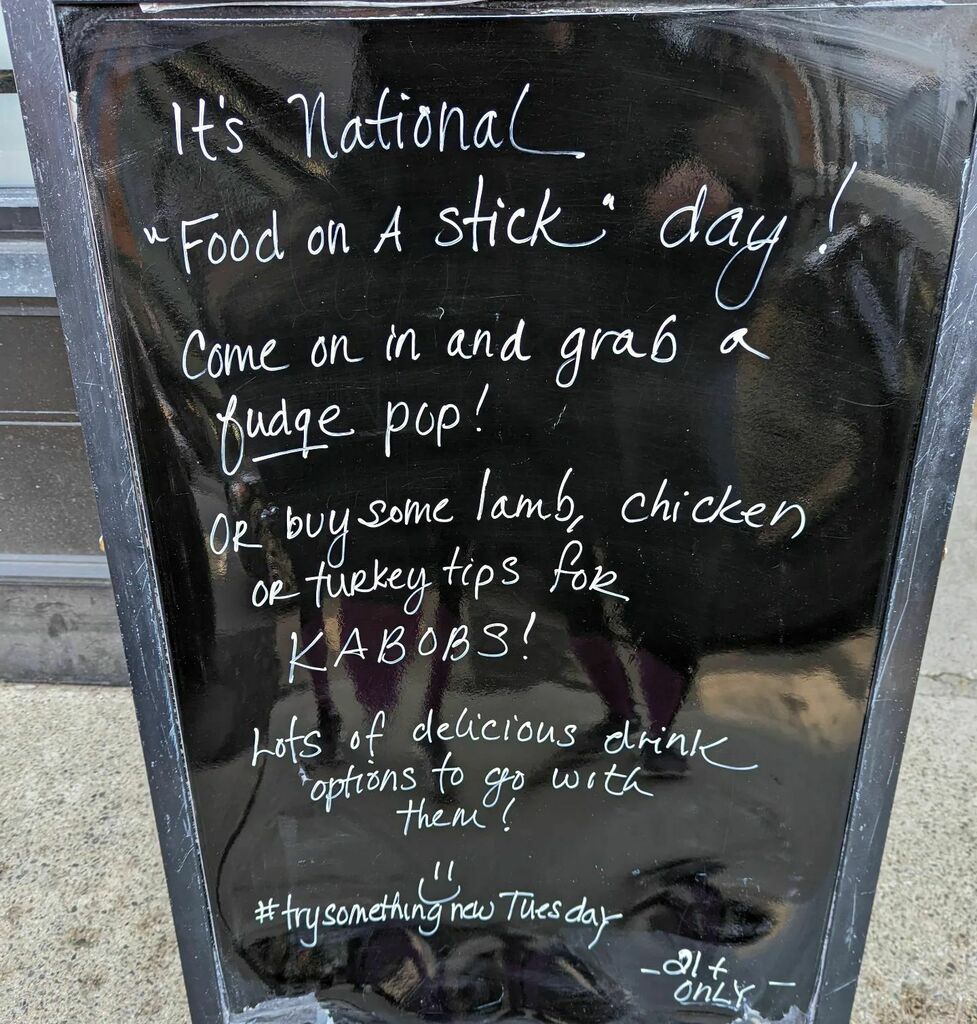 It's National
"Food on A stick" day!
Come on in and grab a
fudge pop!
OR buy some lamb, chicken,
OR turkey tips for
KABOBS!
Lots of delicious drink
options to go with
them!
#trysomethingnewTuesday
- 21+
ONLY -